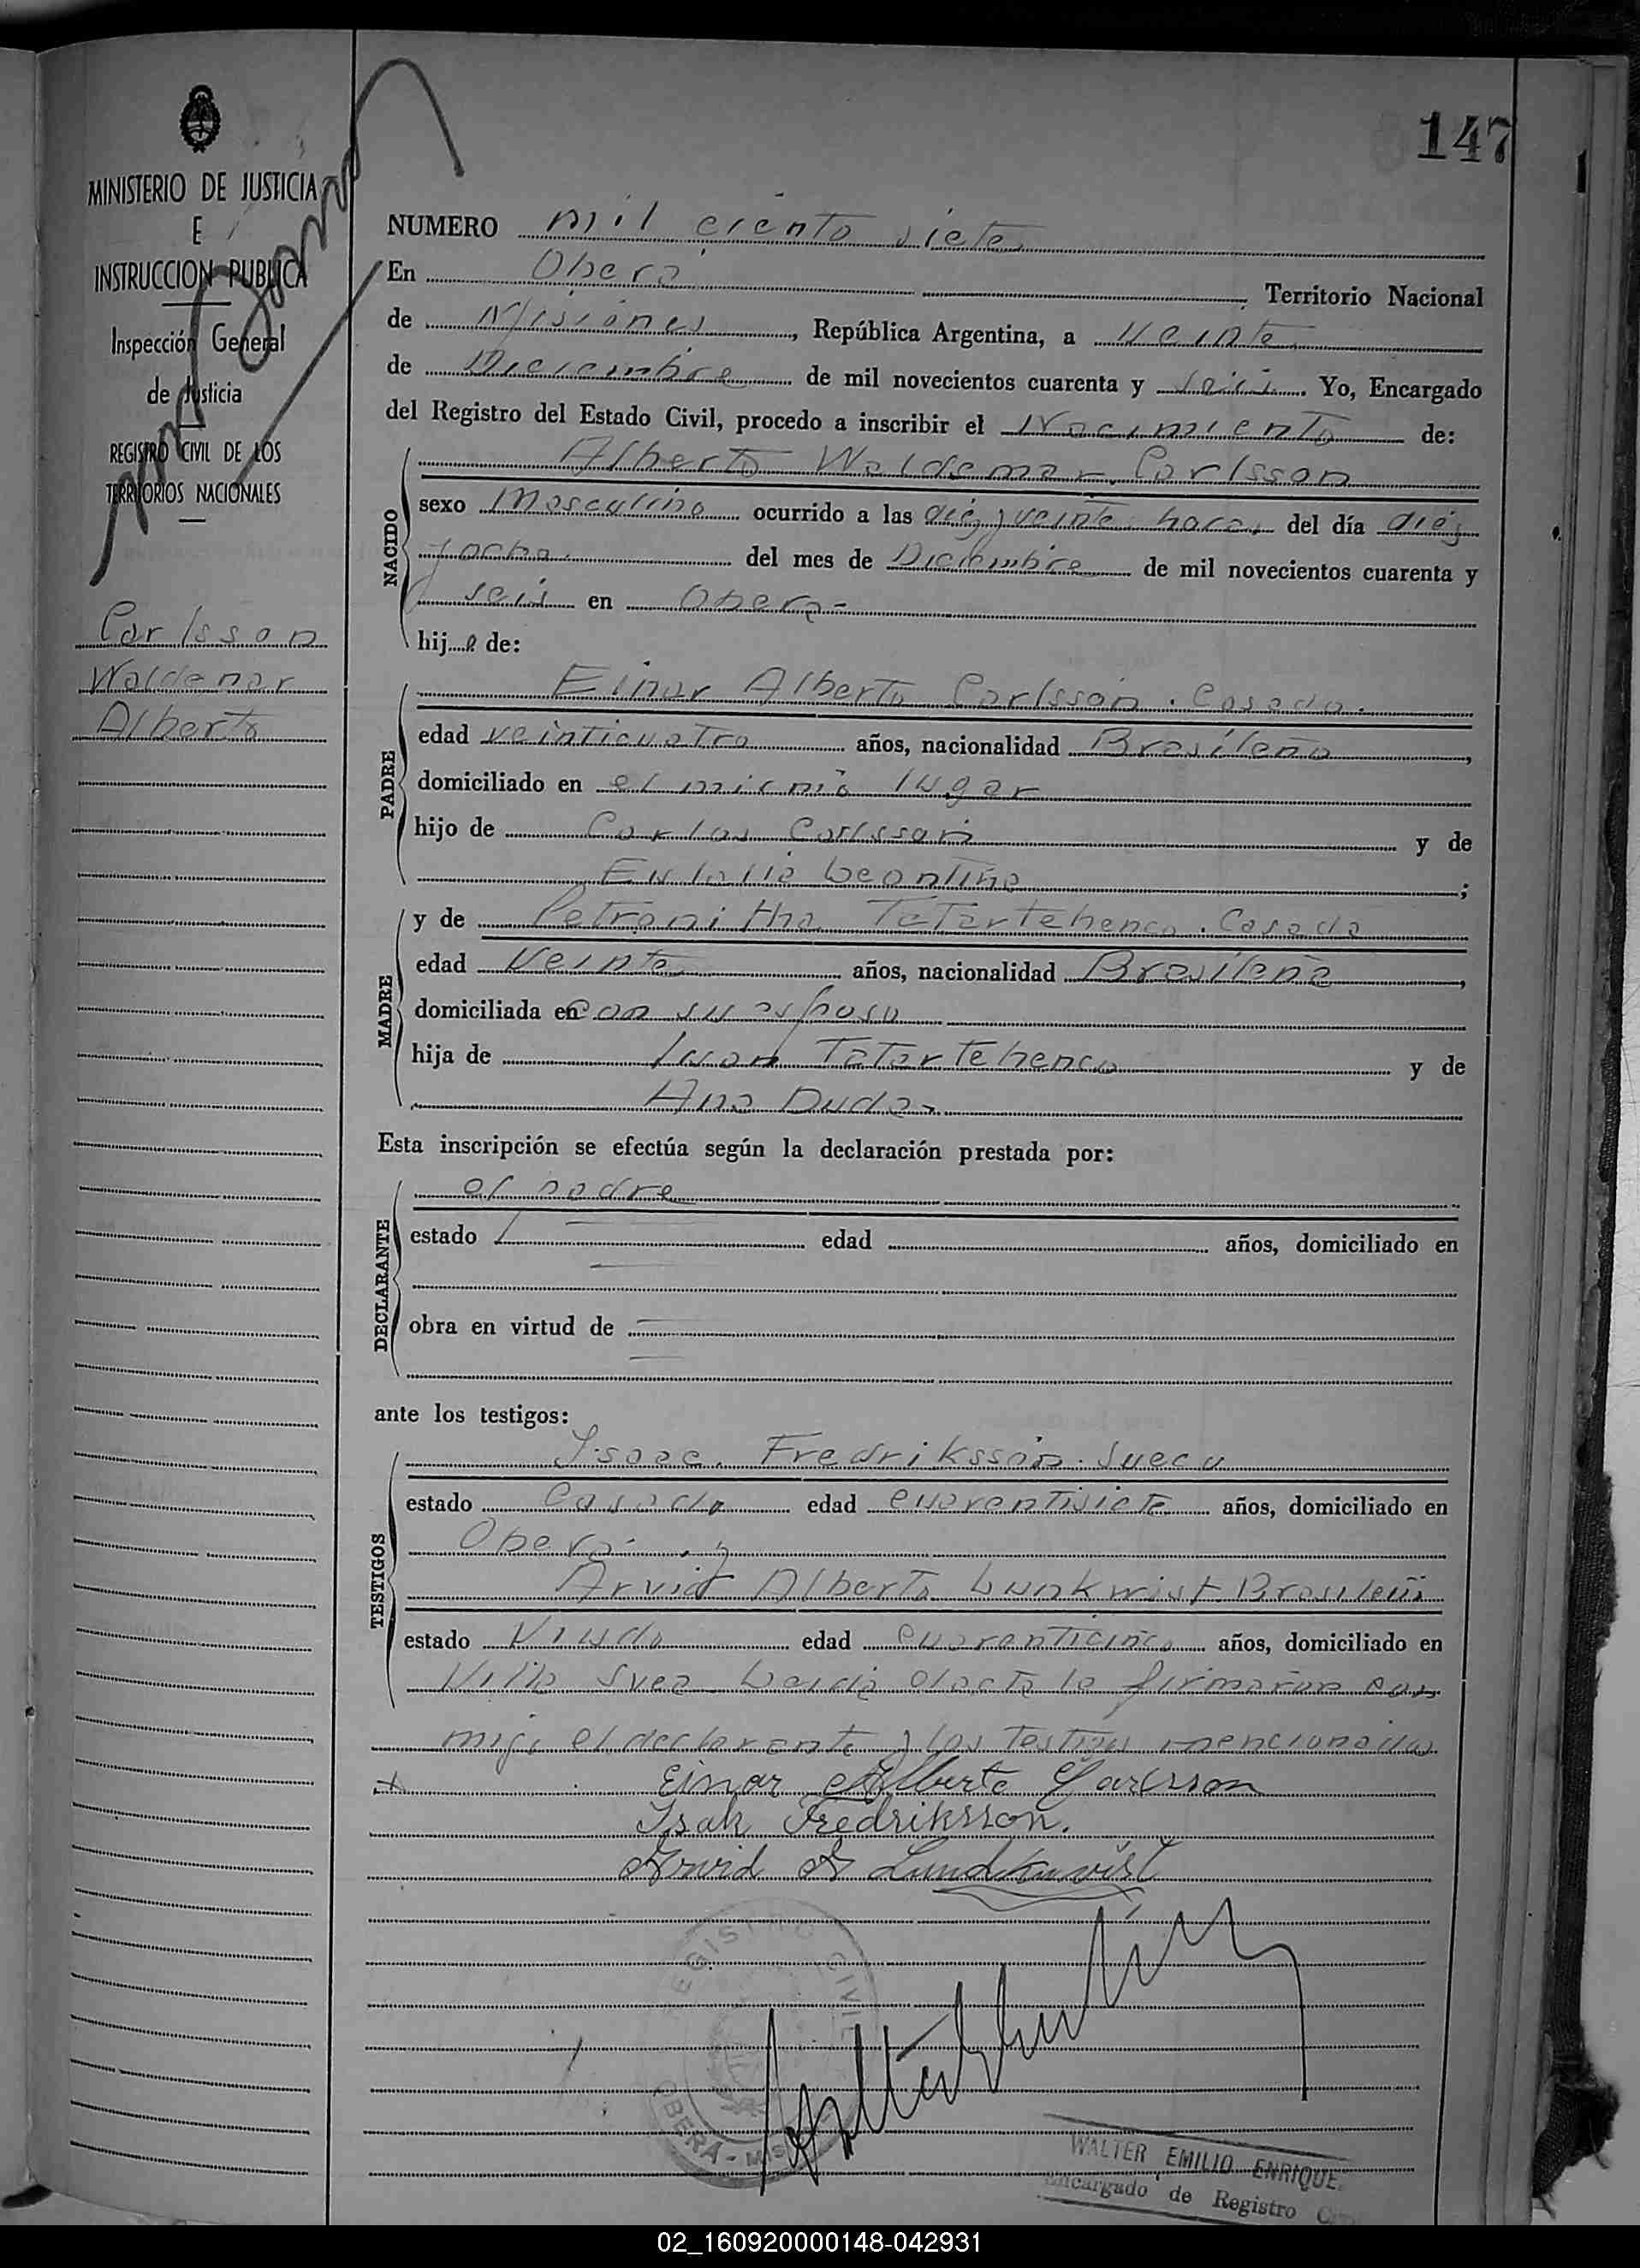 147
MINISTERIO DE JUSTICIA
E
INSTRUCCION PUBLICA
Inspección General
de Justicia
REGISTRO CIVIL DE LOS
TERRITORIOS NACIONALES
Carlsson
Waldemar
Alberto
NUMERO mil ciento siete
En Oberá, Territorio Nacional
de Misiones, República Argentina, a Veinte
de Diciembre de mil novecientos cuarenta y seis. Yo, Encargado
del Registro del Estado Civil, procedo a inscribir el Nacimiento de:
NACIDO
Alberto Waldemar Carlsson
sexo Masculino ocurrido a las diez y veinte horas del día diez
y ocho del mes de Diciembre de mil novecientos cuarenta y
seis en Oberá-
hijo de:
PADRE
Einar Alberto Carlsson. Casado.
edad veinticuatro años, nacionalidad Brasileño,
domiciliado en el mismo lugar
hijo de Carlos Carlsson y de
Eulalia Leontina;
MADRE
y de Tatartchenco. Casada
edad Veinte años, nacionalidad Brasileña,
domiciliada en con su esposo
hija de Juan Tatartchenco y de
Ana Duda-
Esta inscripción se efectúa según la declaración prestada por:
DECLARANTE
el padre
estado edad años, domiciliado en
obra en virtud de
ante los testigos:
TESTIGOS
Isaac Fredriksson. Sueco
estado Casado edad cuarentisiete años, domiciliado en
Oberá. y
Arvid Alberto Lunkwist Brasileño
estado Viudo edad cuarenticinco años, domiciliado en
Villa Svea Leida el acta la firmaron con
migo el declarante y los testigos mencionados
Einar Alberto Carlsson
Isak Fredriksson.
Arvid A Lundkwist
REGISTRO CIVIL
OBERA - MIS
WALTER EMILIO ENRIQUE
Encargado de Registro
02_160920000148-042931